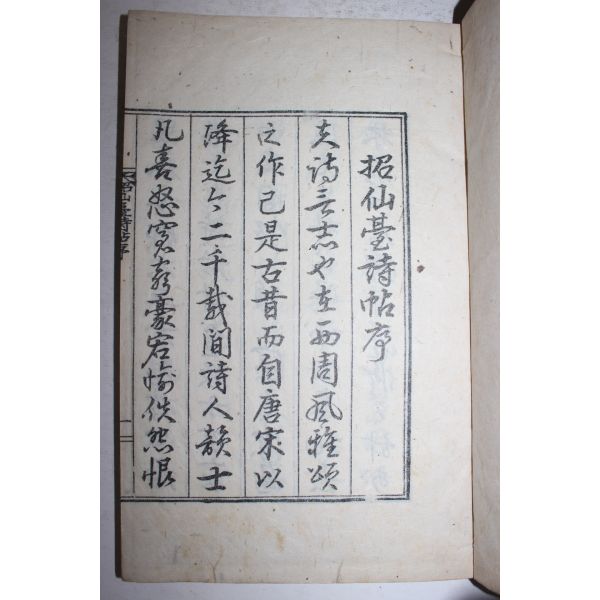 招仙臺詩帖序
夫詩言志也在西周風雅頌
之作已是古昔而自唐宋以
降迄今二千載間詩人韻士
凡喜怒窮豪宕愉佚怨恨
招仙臺詩帖序